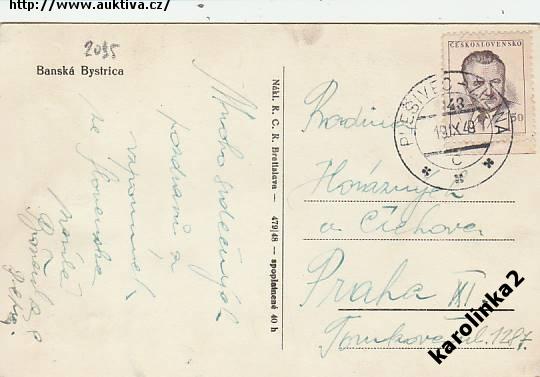 http://www.auktiva.cz/
2035
Banská Bystrica
Mnoho srdečných
pozdravů a
vzpomínek
ze Slovenska
posílá
Nákl. K. C. R. Bratislava — 479/48 — spoplatnené 40 h
ČESKOSLOVENSKO
50
PLEŠIVEC
19.IX.48
c
Rodina
a
Praha III
ul. 1287.
karolinka2